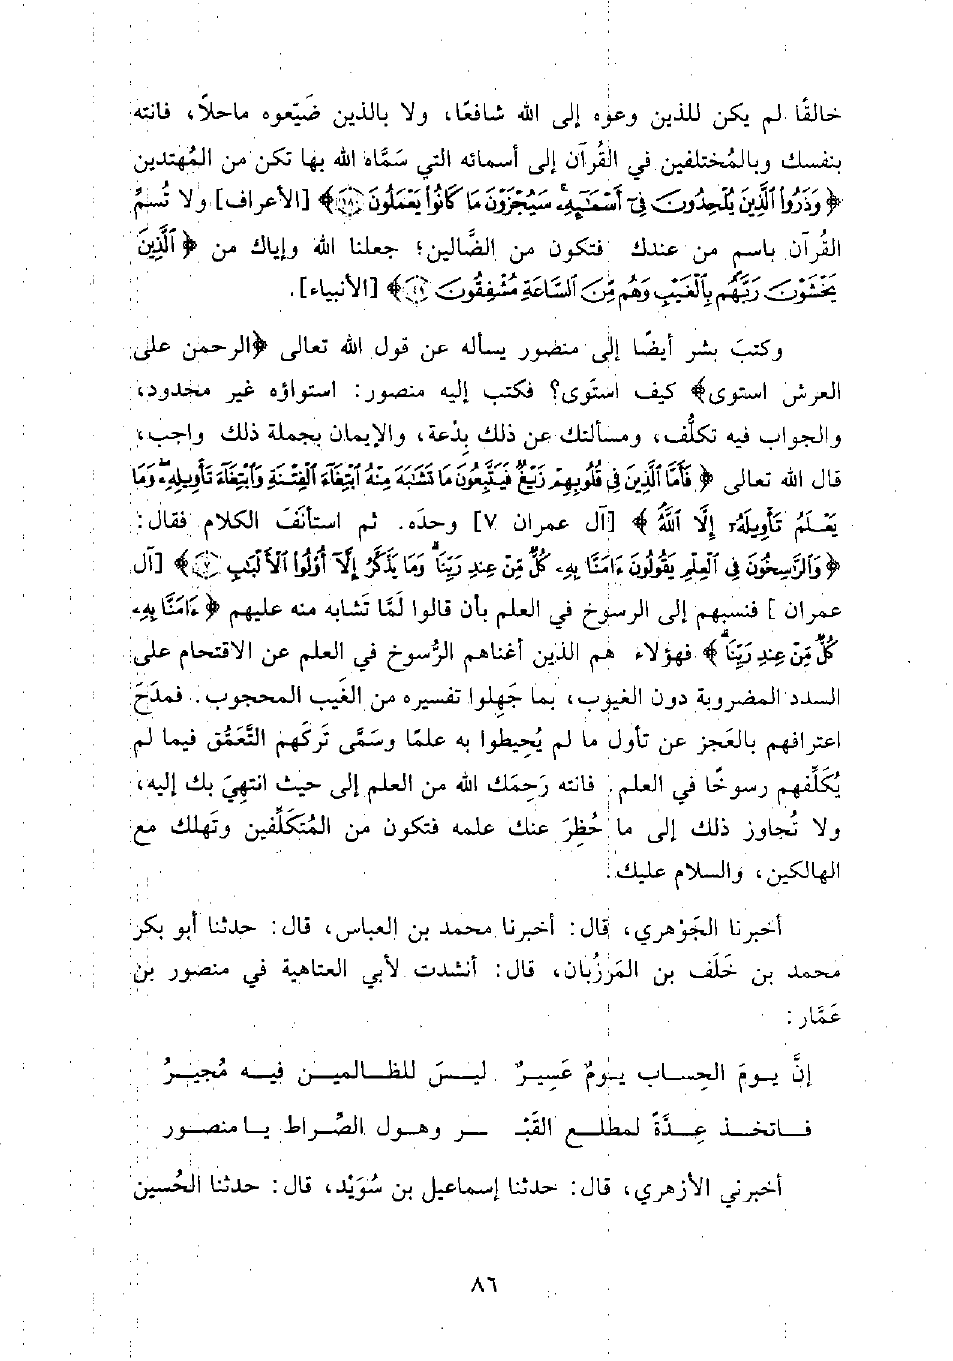 خالقًا لم يكن للذين وعوه إلى الله شافعًا، ولا بالذين ضَيّعوه ماحلًا، فانته
بنفسك وبالمُختلفين في القُرآن إلى أسمائه التي سَمَّاه الله بها تكن من المُهتدين
﴿وَذَرُوا الَّذِينَ يُلْحِدُونَ فِي أَسْمَائِهِ سَيُجْزَوْنَ مَا كَانُوا يَعْمَلُونَ ۝١٨٠﴾ [الأعراف] ولا تُسمِّ
القُرآن باسم من عندك فتكون من الضَّالين؛ جعلنا الله وإياك من ﴿الَّذِينَ
يَخْشَوْنَ رَبَّهُم بِالْغَيْبِ وَهُم مِّنَ السَّاعَةِ مُشْفِقُونَ ۝٤٩﴾ [الأنبياء].
وكتبَ بشر أيضًا إلى منصور يسأله عن قول الله تعالى ﴿الرحمن على
العرش استوى﴾ كيف استَوى؟ فكتب إليه منصور: استواؤه غير محدود،
والجواب فيه تكلُّف، ومسألتك عن ذلك بِدْعة، والإيمان بجملة ذلك واجب،
قال الله تعالى ﴿فَأَمَّا الَّذِينَ فِي قُلُوبِهِمْ زَيْغٌ فَيَتَّبِعُونَ مَا تَشَابَهَ مِنْهُ ابْتِغَاءَ الْفِتْنَةِ وَابْتِغَاءَ تَأْوِيلِهِ وَمَا
يَعْلَمُ تَأْوِيلَهُ إِلَّا اللَّهُ﴾ [آل عمران ٧] وحدَه. ثم استأنَفَ الكلام فقال:
﴿وَالرَّاسِخُونَ فِي الْعِلْمِ يَقُولُونَ ءَامَنَّا بِهِ كُلٌّ مِّنْ عِندِ رَبِّنَا وَمَا يَذَّكَّرُ إِلَّا أُوْلُوا الْأَلْبَابِ ۝٧﴾ [آل
عمران ] فنسبهم إلى الرسوخ في العلم بأن قالوا لَمَّا تَشابه منه عليهم ﴿ءَامَنَّا بِهِ
كُلٌّ مِّنْ عِندِ رَبِّنَا﴾ فهؤلاء هم الذين أغناهم الرُّسوخ في العلم عن الاقتحام على
السدد المضروبة دون الغيوب، بما جَهِلوا تفسيره من الغَيب المحجوب. فمدَحَ
اعترافهم بالعَجز عن تأول ما لم يُحِيطوا به علمًا وسَمَّى تَركَهم التَّعَمُّق فيما لم
يُكَلِّفهم رسوخًا في العلم. فانته رَحِمَك الله من العلم إلى حيث انتهِيَ بك إليه،
ولا تُجاوز ذلك إلى ما حُظِرَ عنك علمه فتكون من المُتكَلِّفين وتَهلك مع
الهالكين، والسلام عليك.
أخبرنا الجَوْهري، قال: أخبرنا محمد بن العباس، قال: حدثنا أبو بكر
محمد بن خَلَف بن المَرزُبان، قال: أنشدت لأبي العتاهية في منصور بن
عَمَّار:
إنَّ يومَ الحِساب يومٌ عَسِيرٌ ليسَ للظالمين فيه مُجيرُ
فاتخذ عِدَّةً لمطلع القَبْـ ـر وهول الصِّراط يا منصور
أخبرني الأزهري، قال: حدثنا إسماعيل بن سُوَيْد، قال: حدثنا الحُسين
٨٦